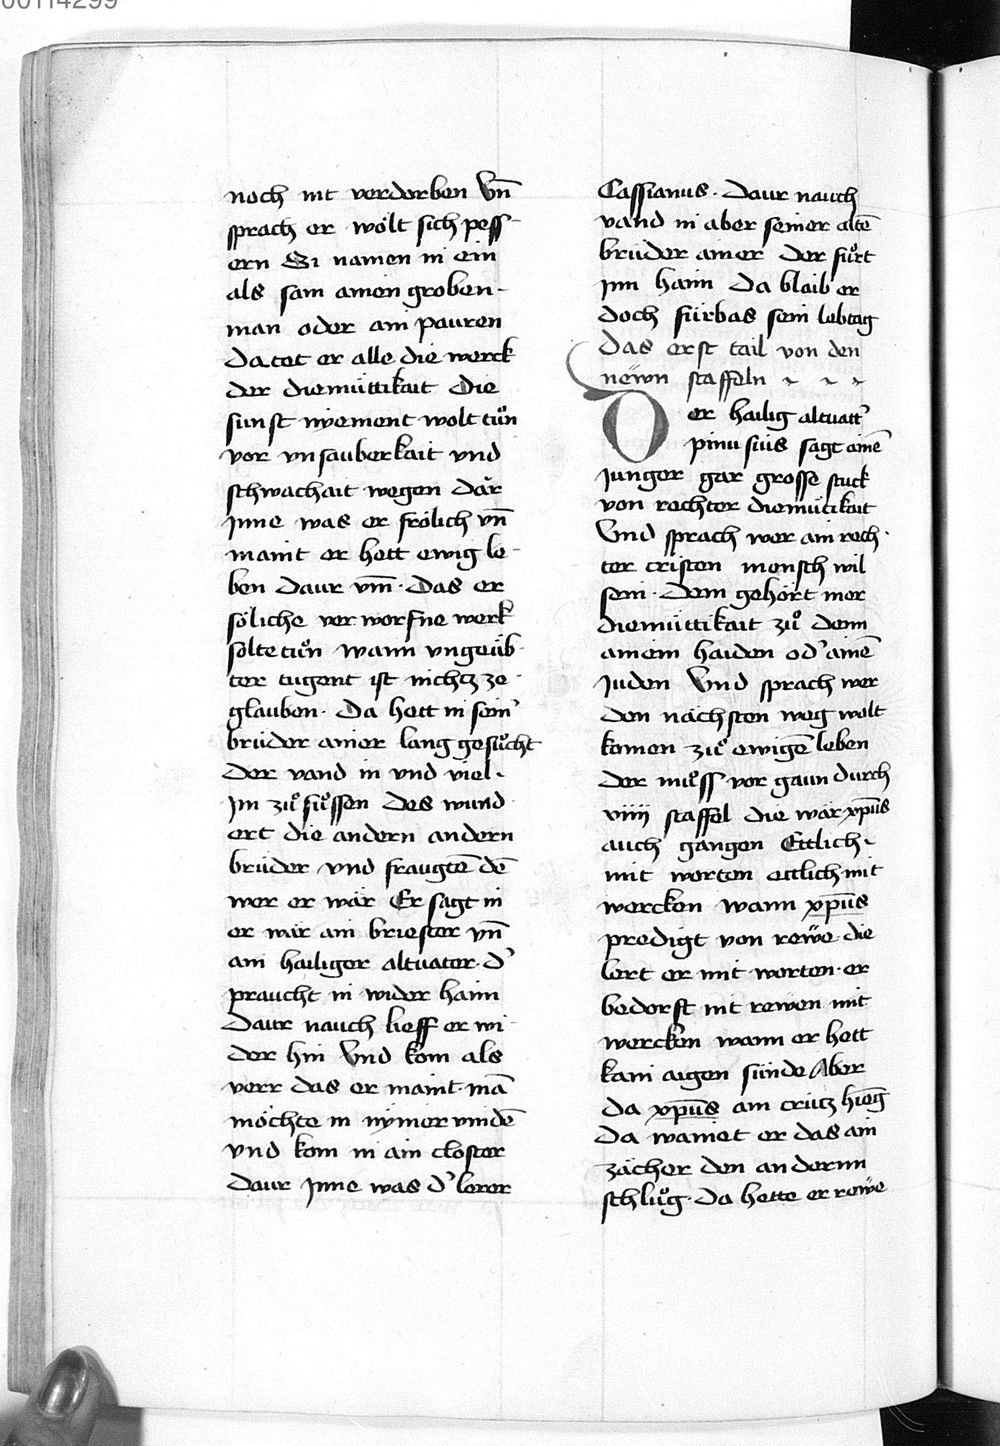 00114299
noch nit verdorben vn̄
sprach er wölt sich pess-
ern Si namen in ein
als sam ainen groben-
man oder ain pauren
Da tet er alle die werck
der diemüttikait Die
sunst nyement wolt tůn
vor vnsauberkait vnd
schwachait wegen Dar
jnne was er frölich vn̄
maint er hett ewig le-
ben Daur vm̄· Das er
söliche verworfne werk
solte tůn wann vngeüb-
ter tugent ist nichcz ze
glauben· Da hett in sein᾽
brüder ainer lang gesůcht
Der vand in vnd viel·
Im zů fůssen Des wund
ert die andern andern
brüder vnd fraugtē dē
wer er wär Er sagt in
er wär ain briester vn̄
ain hailiger altuater· d᾽
praucht in wider haim
Daur nauch lieff er wi-
der hin Vnd kom als
verr das er maint mā
möchte in nymer vindē
vnd kom in ain closter
Daur jnne was d᾽ lerer
Cassianus· Daur nauch
vand in aber seiner altē
brüder ainer Der fůrt
jnn haim Da blaib er
doch fürbas sein lebtag
Das erst tail von den
newn staffeln
Der hailig altuatt᾽
pinufius sagt ainē
junger gar grosse stuck
von rechter diemütikait
Vnd sprach wer ain rech-
ter cristen mensch wil
sein· Dem gehört mer
diemüttikait zů denn
ainem haiden od᾽ ainē
Juden Vnd sprach wer
den nächsten weg wolt
komen zů ewigē leben
Der můss vor gaun durch
viiij staffel die wär xp̄us
auch gangen Ettlich·
mit worten ettlich mit
wercken wann xp̄us
predigt von rewe· die
lert er mit worten· er
bedorft nit rewen mit
wercken wann er hett
kain aigen sünde Aber
da xp̄us am crütz hieng
Da wainet er das ain
zächer den andernn
schlůg· Da hette er rewe